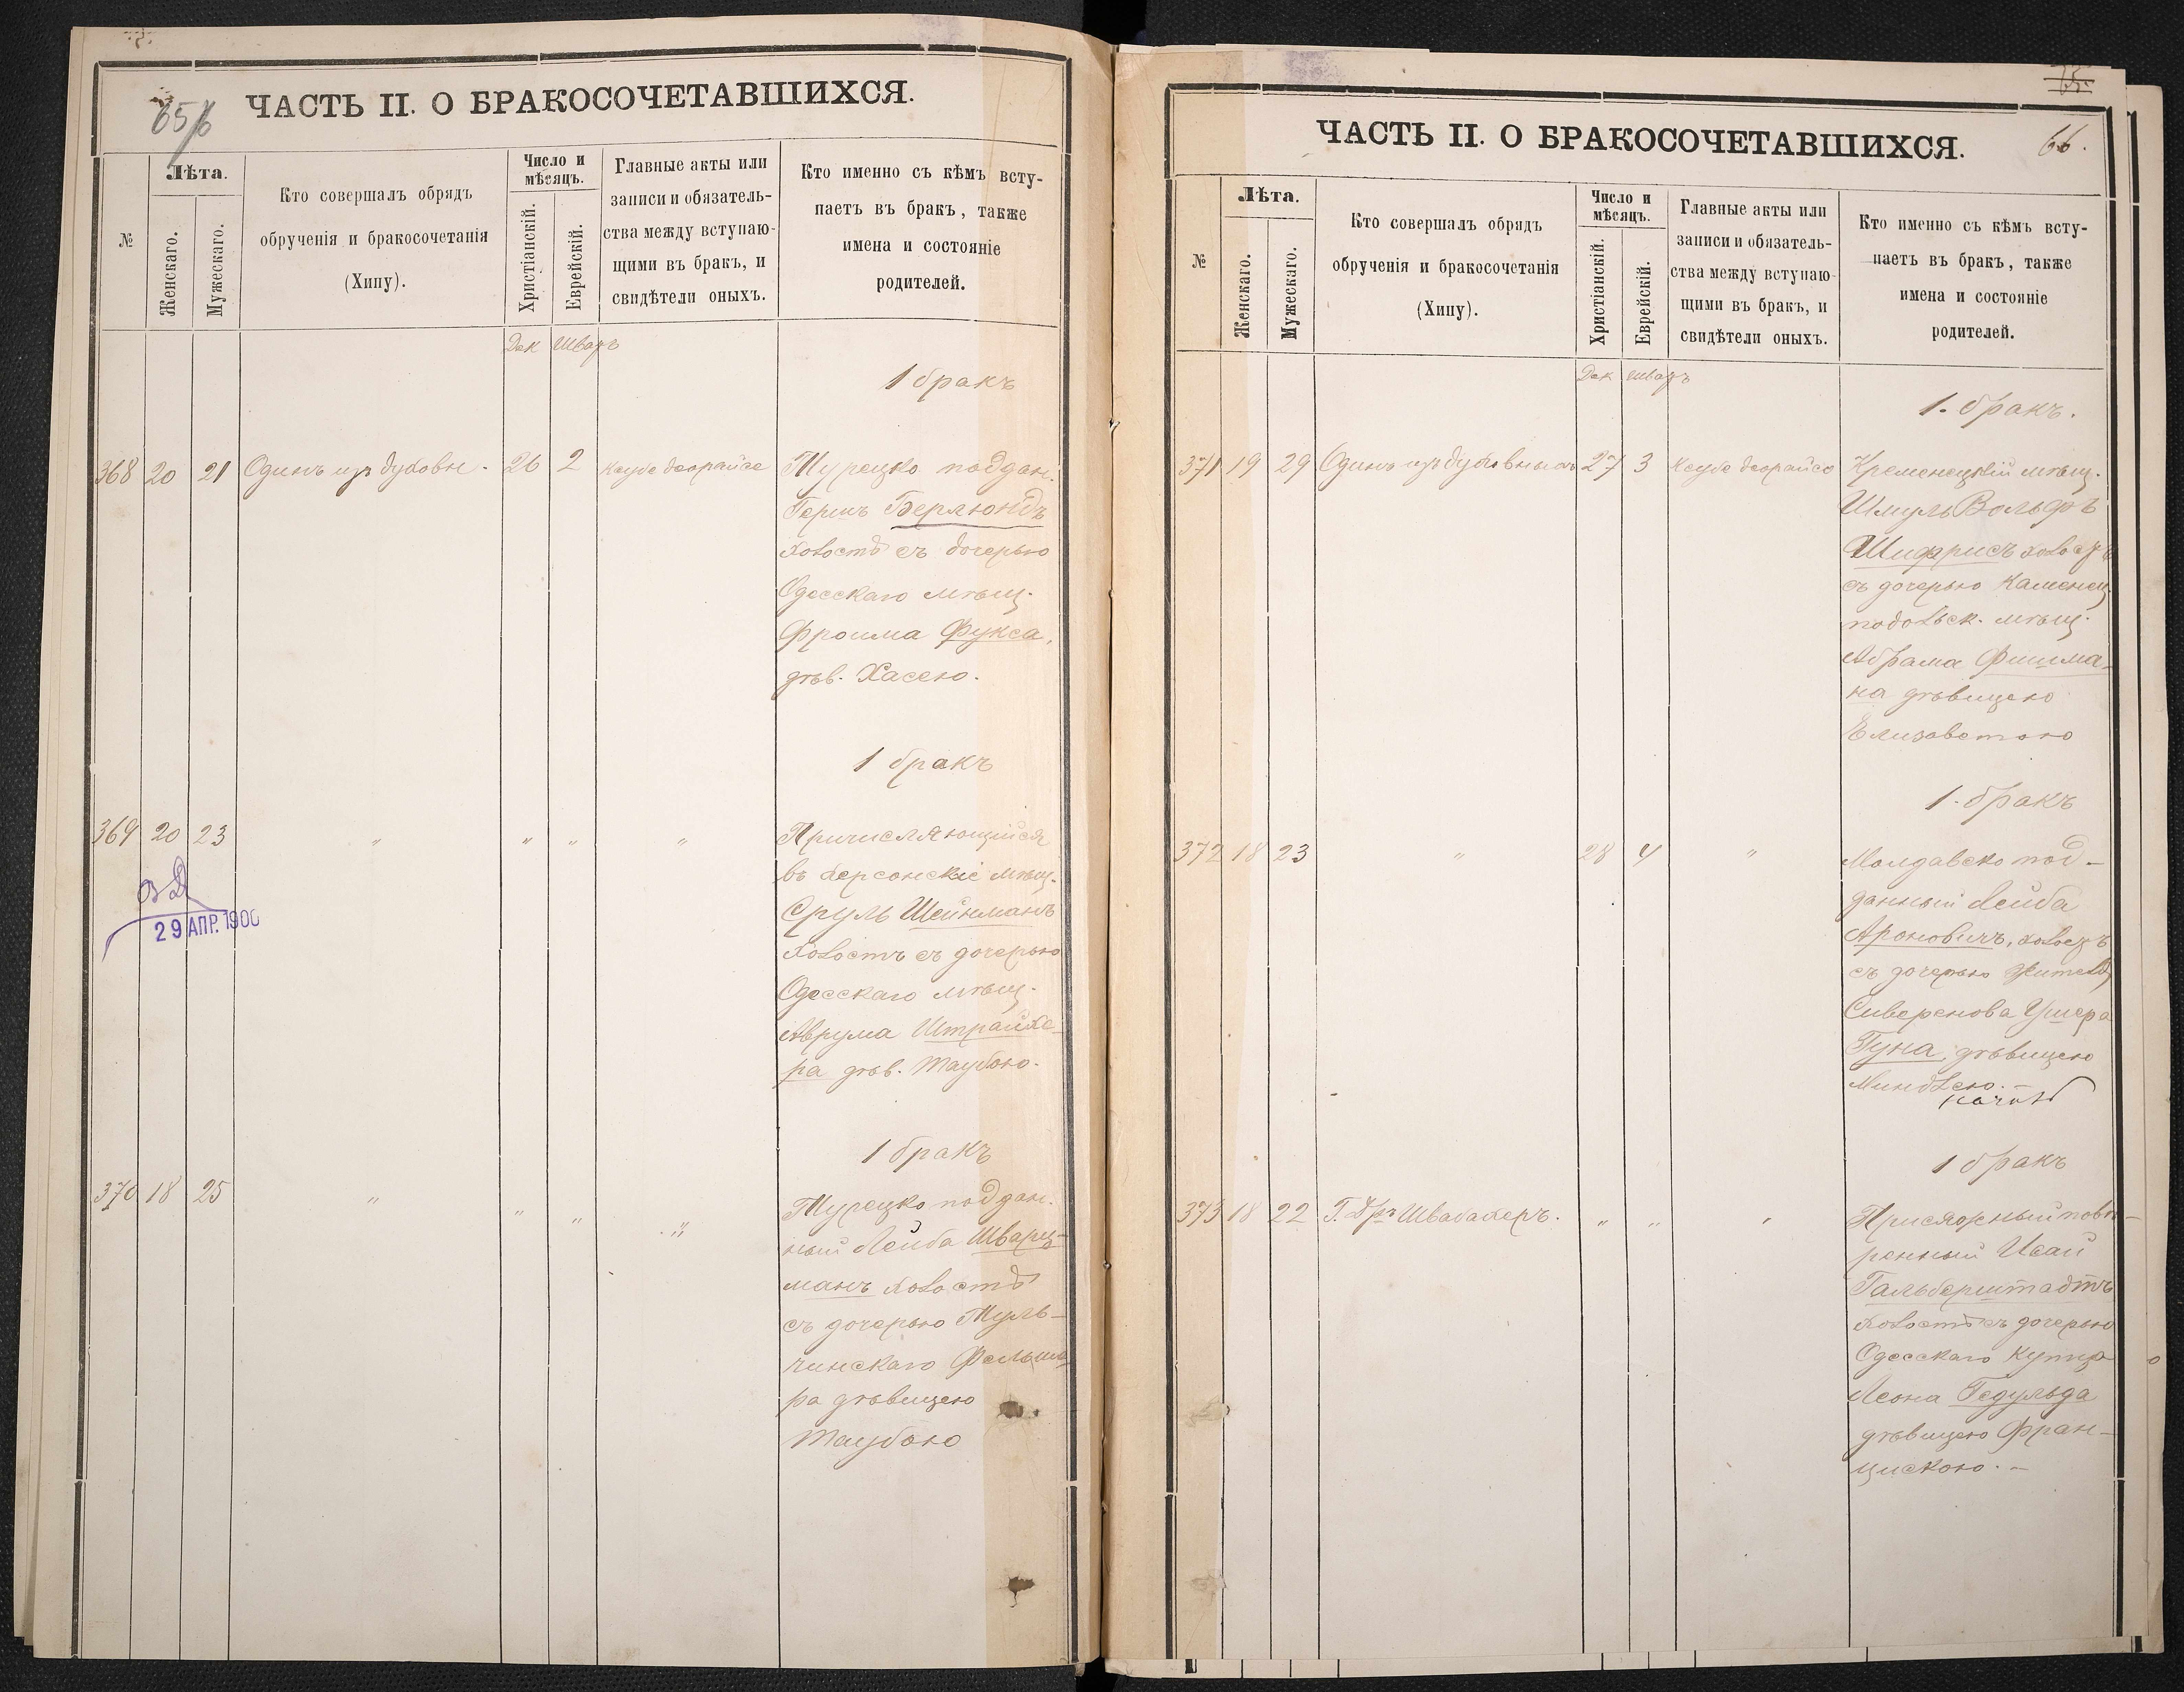 ЧАСТЬ II. О БРАКОСОЧЕТАВШИХСЯ.
№
Лѣта.
Женскаго.
Мужескаго.
Кто совершалъ обрядъ
обрученія и бракосочетанія
(Хипу).
Число и
мѣсяцъ.
Христіанскій.
Еврейскій.
Главные акты или
записи и обязатель-
ства между вступаю-
щими въ бракъ, и
свидѣтели оныхъ.
Кто именно съ кѣмъ всту-
паетъ въ бракъ, также
имена и состояніе
родителей.
Дек Шватъ
1 бракъ
368 20 21 Одинъ изъ духовн. 26 2 Ксубе деорайсе Турецко поддан.
Гершъ Берлюндъ
холостъ съ дочерью
Одесскаго мѣщ.
Фроима Фукса,
дѣв. Хасею.
1 бракъ
369 20 23 " " " " Причисляющійся
въ Херсонскіе мѣщ.
Сруль Шейнманъ
холостъ съ дочерью
Одесскаго мѣщ.
Аврума Штрайхе-
ра дѣв. Таубою.
29 АПР. 1900
1 бракъ
370 18 25 " " " " Турецко поддан.
ный Лейба Шварц-
манъ холостъ
съ дочерью Туль-
чинскаго
ра дѣвицею
Таубою
ЧАСТЬ II. О БРАКОСОЧЕТАВШИХСЯ.
66.
№
Лѣта.
Женскаго.
Мужескаго.
Кто совершалъ обрядъ
обрученія и бракосочетанія
(Хипу).
Число и
мѣсяцъ.
Христіанскій.
Еврейскій.
Главные акты или
записи и обязатель-
ства между вступаю-
щими въ бракъ, и
свидѣтели оныхъ.
Кто именно съ кѣмъ всту-
паетъ въ бракъ, также
имена и состояніе
родителей.
Дек Шватъ
1. бракъ.
371 19 29 Одинъ изъ духовныхъ 27 3 Ксубе деорайсе Кременецкій мѣщ.
Шмуль Вольфъ
Шифрисъ холостъ
съ дочерью Каменец
подольск. мѣщ.
Абрама Фишма-
на дѣвицею
Елизаветою
1. бракъ
372 18 23 " 28 4 " Молдавско под-
данный Лейба
Ароновичъ, холостъ
съ дочерью жителя
Сиверенова Ушера
Гуна, дѣвицею
Миндлею. -
1 бракъ
373 18 22 Г. Дръ Швабахеръ. " " " Присяжный повѣ-
ренный Исай
Гальберштадтъ
холостъ съ дочерью
Одесскаго Купца
Леона Гедульда
дѣвицею Фран-
цискою. -